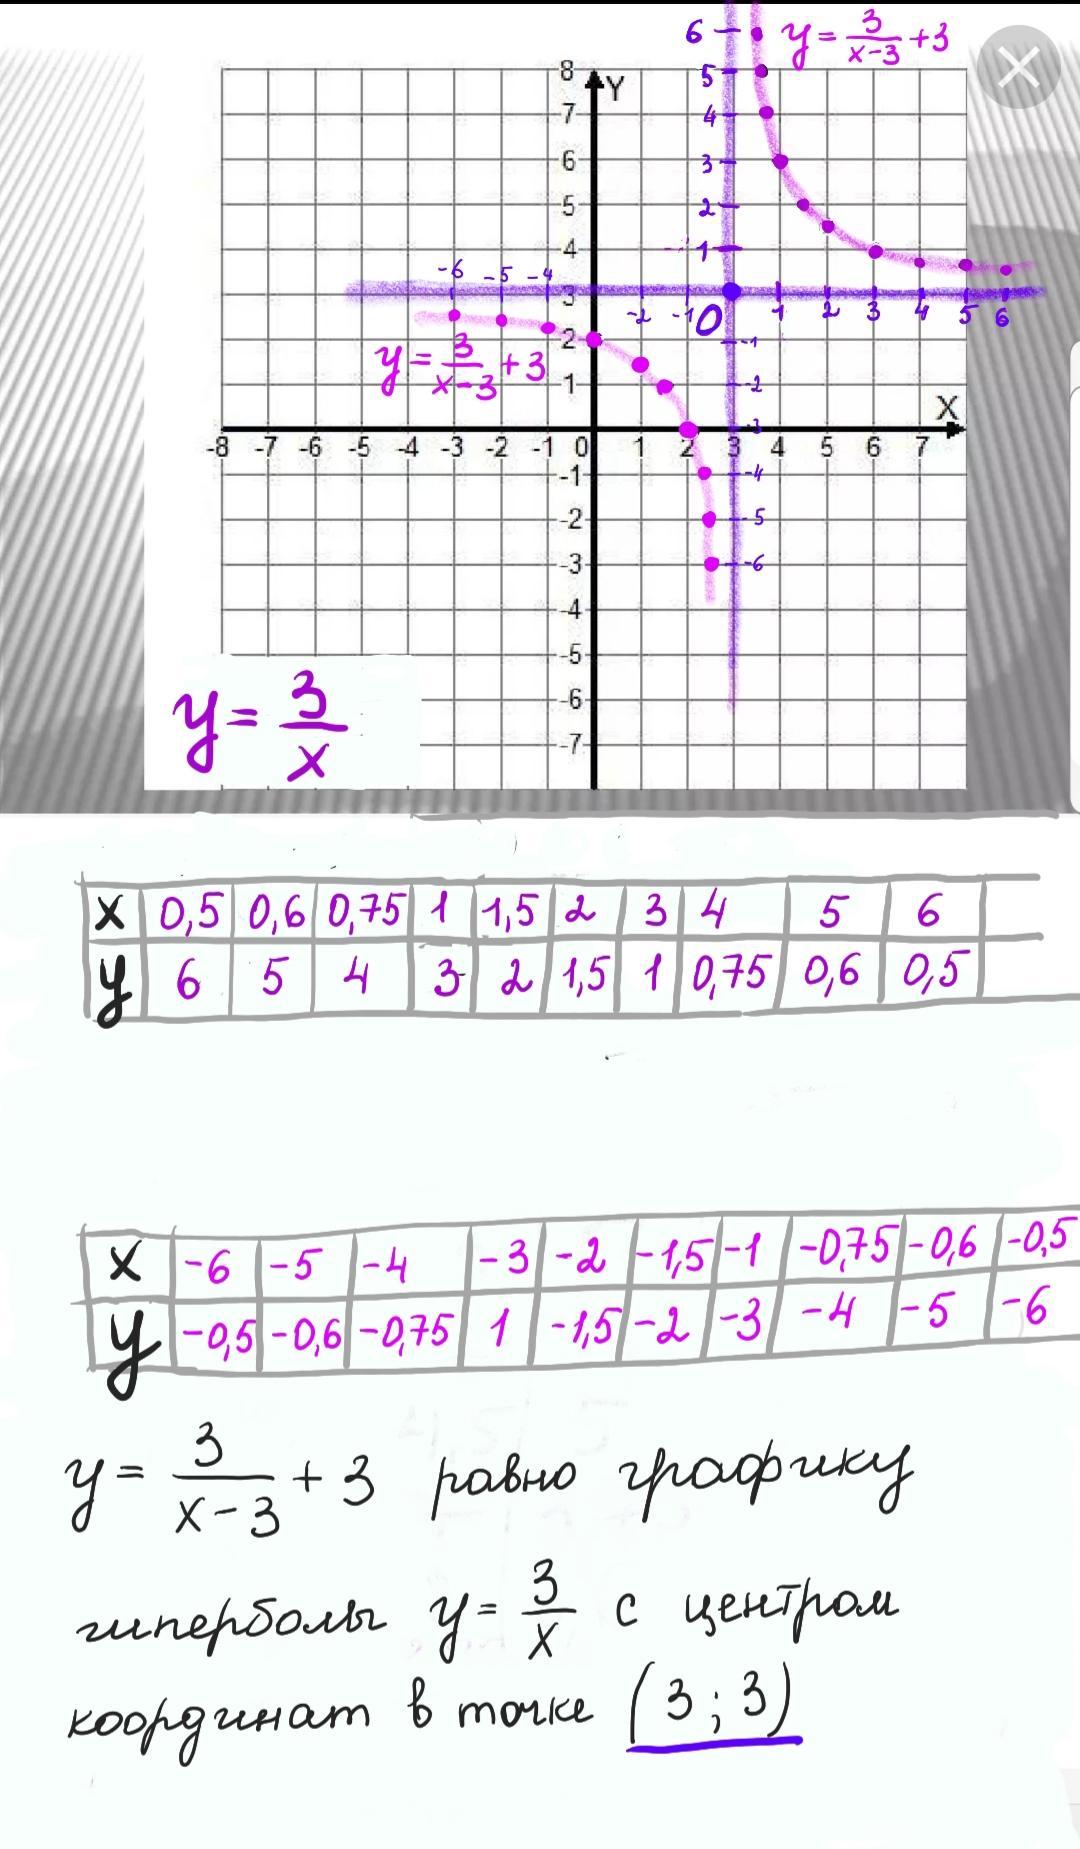 6 y = 3/(x-3) + 3
8 Y 5
7 4
6 3
5 2
4 1
-6 -5 -4 3 -2 -1 0 1 2 3 4 5 6
2 -1
y = 3/(x-3) + 3
1 -2
X
-3
-8 -7 -6 -5 -4 -3 -2 -1 0 1 2 3 4 5 6 7
-1 -4
-2 -5
-3 -6
-4
-5
-6
-7
y = 3/x
x 0,5 0,6 0,75 1 1,5 2 3 4 5 6
y 6 5 4 3 2 1,5 1 0,75 0,6 0,5
x -6 -5 -4 -3 -2 -1,5 -1 -0,75 -0,6 -0,5
y -0,5 -0,6 -0,75 1 -1,5 -2 -3 -4 -5 -6
y = 3/(x-3) + 3 равно графику
гиперболы y = 3/x с центром
координат в точке (3; 3)